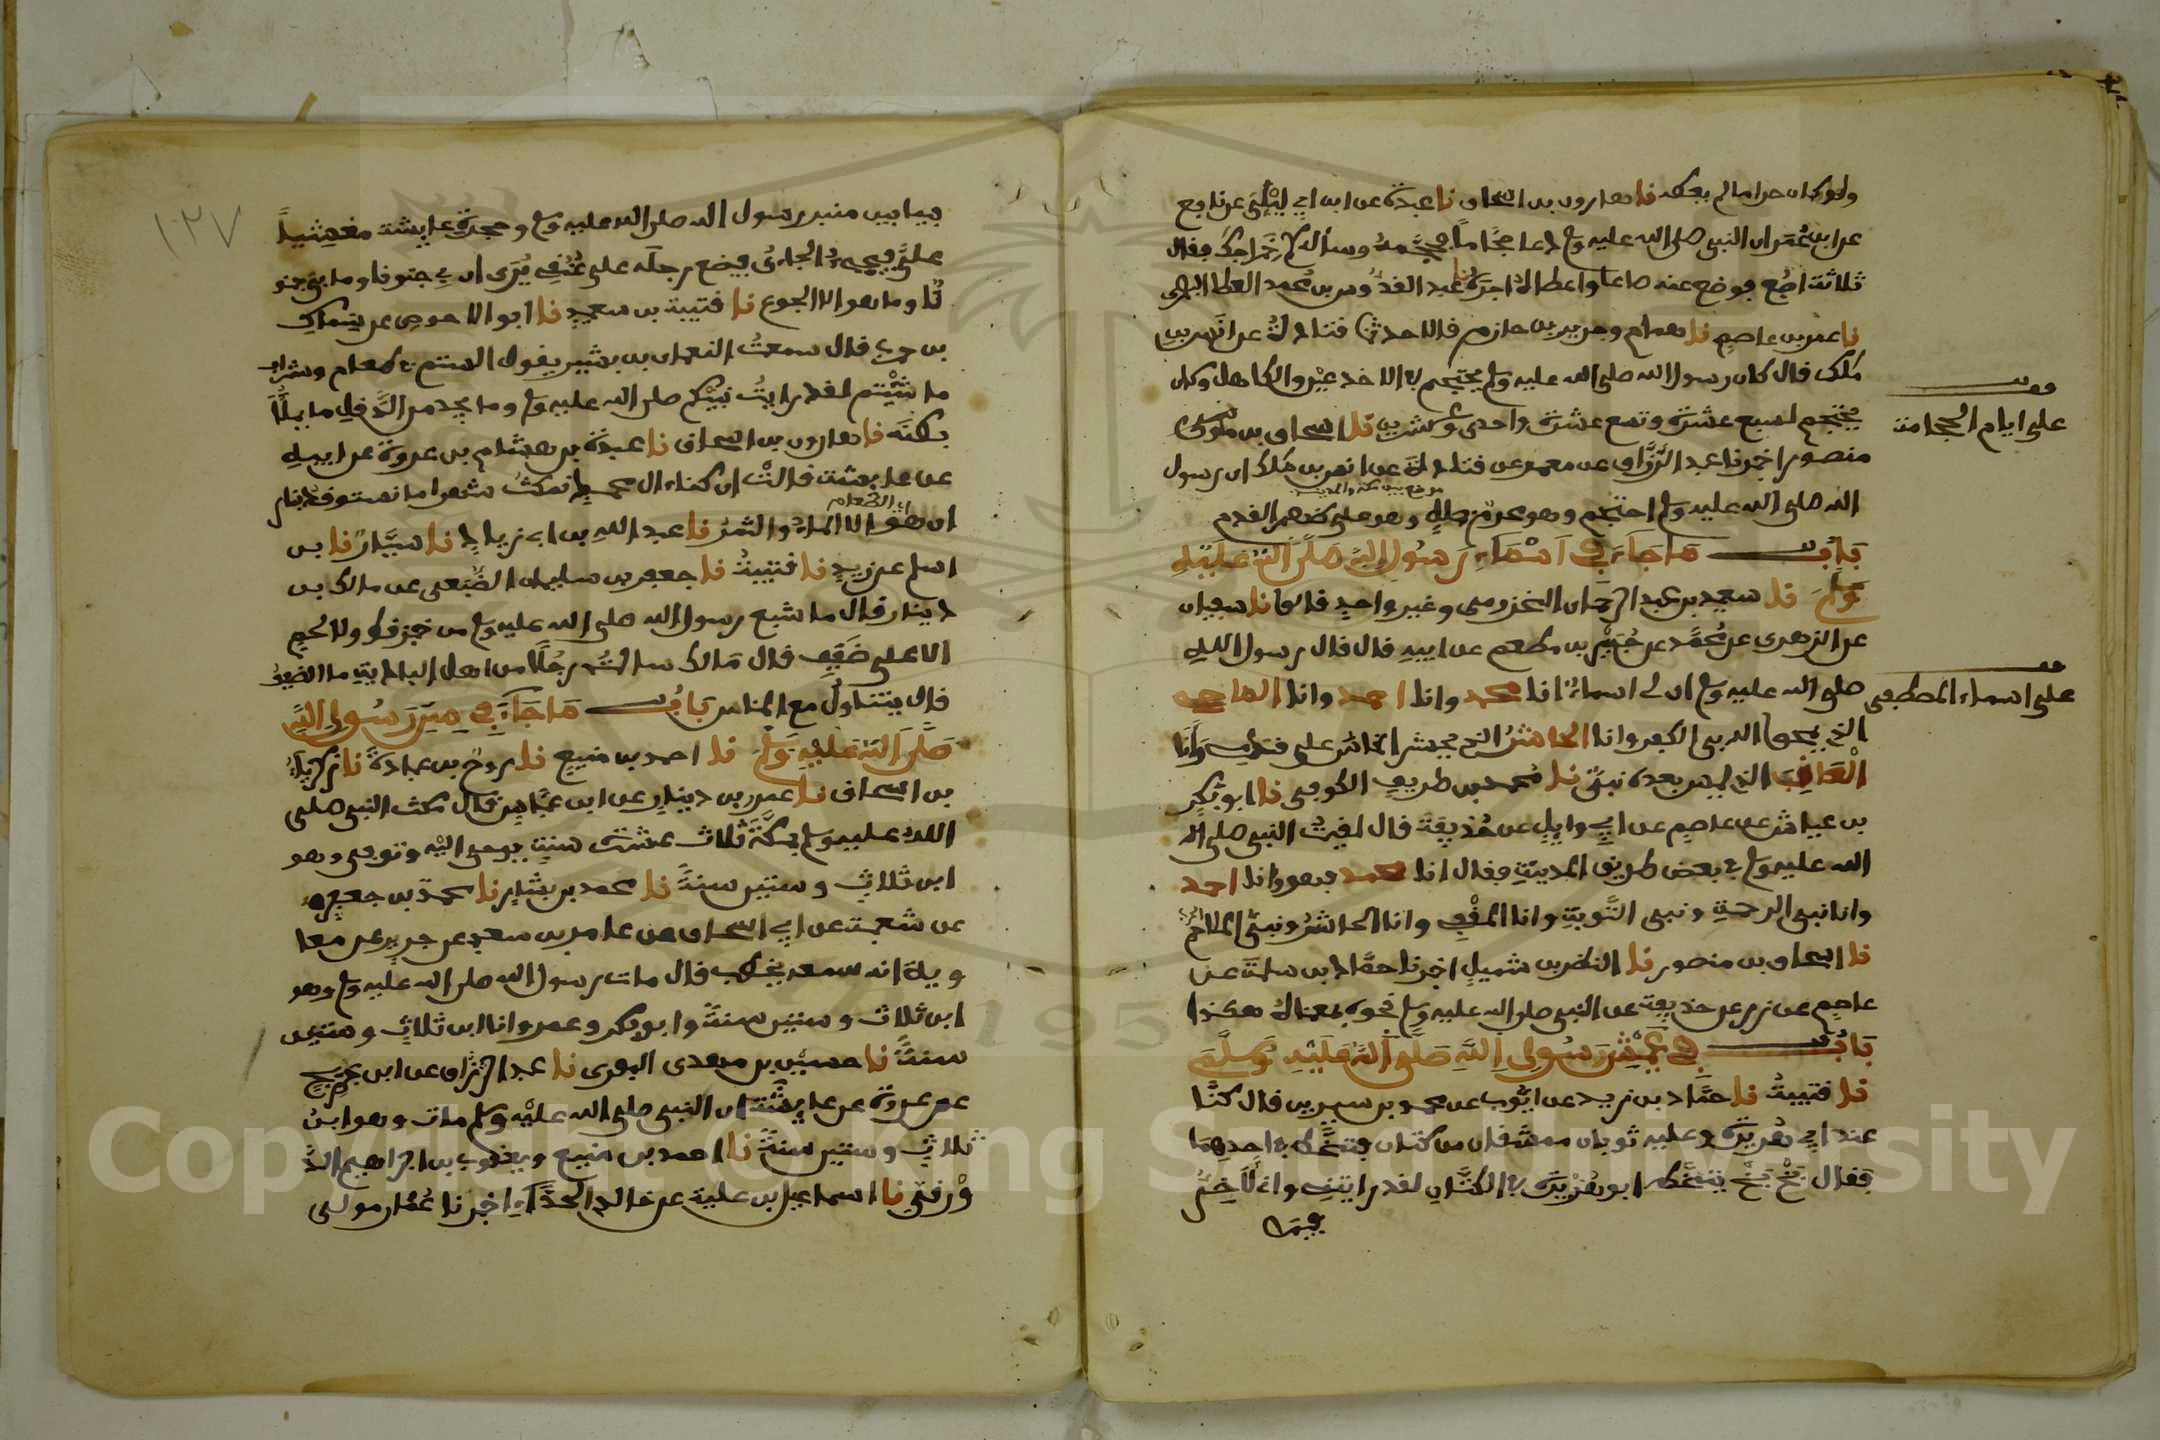 ولو كان حراما لم يعطه نا هارون بن اسحاق نا عبدة عن ابن ابي ليلى عن نافع
عن ابن عمر ان النبي صلى الله عليه وسلم دعا حجاما فحجمه وسأله كم خراجك فقال
ثلاثة اصع فوضع عنه صاعا واعطاه اجره نا عبد القدوس بن محمد العطار البصري
نا عمرو بن عاصم نا همام وجرير بن حازم قالا حدثنا قتادة عن انس بن
ملك قال كان رسول الله صلى الله عليه وسلم يحتجم في الاخدعين والكاهل وكان
يحتجم لسبع عشرة وتسع عشرة واحدى وعشرين نا اسحاق بن
على ايام الحجامة
منصور اخبرنا عبد الرزاق عن معمر عن قتادة عن انس بن ملك ان رسول
الله صلى الله عليه وسلم احتجم وهو محرم بملل وهو على ظهر القدم
موضع بين مكة والمدينة
باب ما جاء في اسماء رسول الله صلى الله عليه
وسلم نا سعيد بن عبد الرحمان المخزومي وغير واحد قالوا نا سفيان
عن الزهري عن محمد عن جبير بن مطعم عن ابيه قال قال رسول الله
صلى الله عليه وسلم ان لي اسماء انا محمد وانا احمد وانا الماحي
على اسماء المصطفى
الذي يمحو الله بي الكفر وانا الحاشر الذي يحشر الناس على قدمي وانا
العاقب الذي ليس بعده نبي نا محمد بن طريف الكوفي نا ابو بكر
بن عياش عن عاصم عن ابي وايل عن حذيفة قال لقيت النبي صلى الله
الله عليه وسلم في بعض طريق المدينة فقال انا محمد وانا احمد
وانا نبي الرحمة ونبي التوبة وانا المقفي وانا الحاشر ونبي الملاحم
نا اسحاق بن منصور نا النضر بن شميل اخبرنا حماد بن سلمة عن
عاصم عن زر عن حذيفة عن النبي صلى الله عليه وسلم نحوه بمعناه هكذا
باب في عيش رسول الله صلى الله عليه وسلم
نا قتيبة نا حماد بن زيد عن ايوب عن محمد بن سيرين قال كنا
عند ابي هريرة وعليه ثوبان ممشقان من كتان فتمخط في احدهما
فقال بخ بخ يتمخط ابو هريرة في الكتان لقد رايتني واني لاخر
فيما
١٣٧
فيما بين منبر رسول الله صلى الله عليه وسلم وحجرة عايشة مغشيا
علي فيجيء الجاءي فيضع رجله على عنقي يرى ان بي جنونا وما بي جنو
نا وما هو الا الجوع نا قتيبة بن سعيد نا ابو الاحوص عن سماك
بن حرب قال سمعت النعمان بن بشير يقول الستم في طعام وشراب
ما شيتم لقد رايت نبيكم صلى الله عليه وسلم وما يجد من الدقل ما يملأ
بطنه نا هارون بن اسحاق نا عبدة بن هشام بن عروة عن ابيه
عن عايشة قالت ان كنا ال محمد نمكث شهرا ما نستوقد بنار
اي الطعام
ان هو الا الماء والتمر نا عبد الله بن ابي زياد نا سيار نا بن
اسلم عن زيد نا قتيبة نا جعفر بن سليمان الضبعي عن مالك بن
دينار قال ما شبع رسول الله صلى الله عليه وسلم من خبز قط ولا لحم
الا على ضفف قال مالك سالت رجلا من اهل البادية ما الضفف
قال يتناول مع الناس باب ما جاء في سن رسول الله
صلى الله عليه وسلم نا احمد بن منيع نا روح بن عبادة نا زكرياء
بن اسحاق نا عمرو بن دينار عن ابن عباس قال مكث النبي صلى
الله عليه وسلم بمكة ثلاث عشرة سنة يوحى اليه وتوفي وهو
ابن ثلاث وستين سنة نا محمد بن بشار نا محمد بن جعفر
عن شعبة عن ابي اسحاق عن عامر بن سعد عن جرير عن معا
وية انه سمعه يخطب قال مات رسول الله صلى الله عليه وسلم وهو
ابن ثلاث وستين سنة وابو بكر وعمر وانا ابن ثلاث وستين
سنة نا حسين بن مهدي البصري نا عبد الرزاق عن ابن جريج
عن عروة عن عايشة ان النبي صلى الله عليه وسلم مات وهو ابن
ثلاث وستين سنة نا احمد بن منيع ويعقوب بن ابراهيم الد
ورقي نا اسماعيل بن علية عن خالد الحذاء اخبرنا عمار مولى
Copyright © King Saud University
195